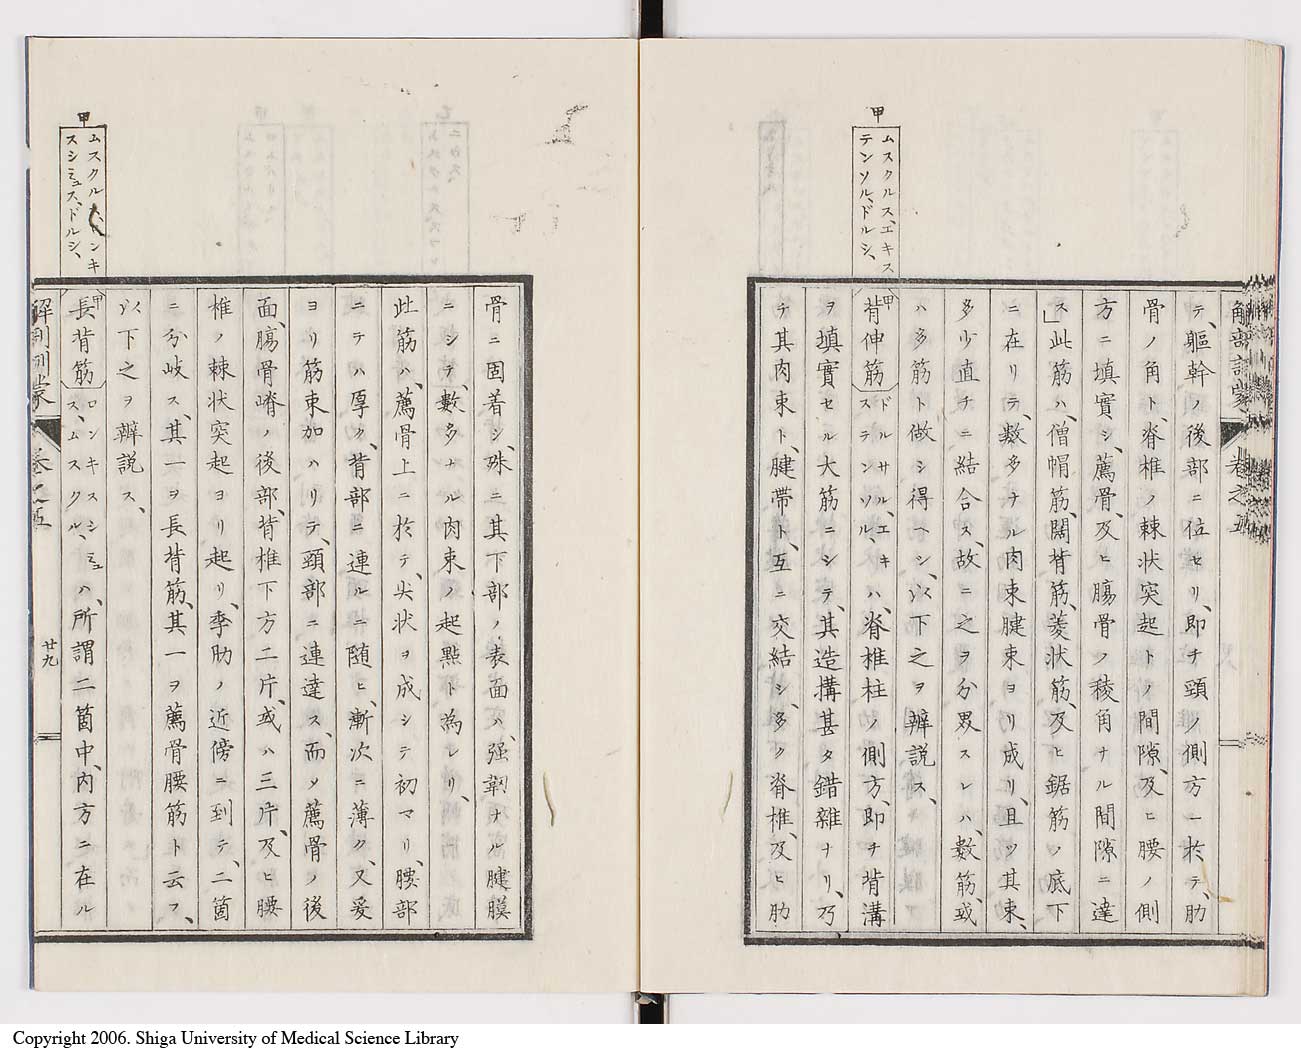 解剖訓蒙 卷之五
甲
ムスクルス、エキス
テンソル、ドルシ、
テ、軀幹ノ後部ニ位セリ、即チ頸ノ側方ニ於テ、肋
骨ノ角ト、脊椎ノ棘状突起トノ間隙、及ヒ腰ノ側
方ニ填實シ、薦骨、及ヒ膓骨ノ稜角ナル間隙ニ達
ス」此筋ハ、僧帽筋、闊背筋、菱状筋、及ヒ鋸筋ノ底下
ニ在リテ、數多ナル肉束腱束ヨリ成リ、且ツ其束、
多少直チニ結合ス、故ニ之ヲ分界スレハ、數筋、或
ハ多筋ト做シ得ヘシ、以下之ヲ辨説ス、
甲背伸筋 ドルサル、エキステンソル、ハ、脊椎柱ノ側方、即チ背溝
ヲ填實セル大筋ニシテ、其造搆甚タ錯雜ナリ、乃
チ其肉束ト、腱帶ト、互ニ交結シ、多ク脊椎、及ヒ肋
骨ニ固着シ、殊ニ其下部ノ表面ハ、强靱ナル腱膜
ニシテ、數多ナル肉束ノ起點ト為レリ、
此筋ハ、薦骨上ニ於テ、尖状ヲ成シテ初マリ、腰部
ニテハ厚ク、背部ニ連ルニ随ヒ、漸次ニ薄ク、又爰
ヨリ筋束加ハリテ、頸部ニ連達ス、而ノ薦骨ノ後
面、膓骨嵴ノ後部、背椎下方二片、或ハ三片、及ヒ腰
椎ノ棘状突起ヨリ起リ、季肋ノ近傍ニ到テ、二箇
ニ分岐ス、其一ヲ長背筋、其一ヲ薦骨腰筋ト云フ、
以下之ヲ辨説ス、
甲
ムスクル、ンキ
スシミュス、ドルシ、
甲長背筋 ロンキスシミュス、ムスクル、ハ、所謂二箇中、内方ニ在ル
解剖訓蒙 卷之五 廿九
Copyright 2006. Shiga University of Medical Science Library